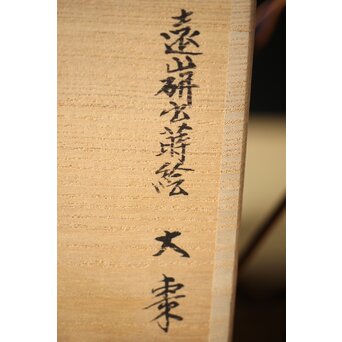 遠山研出蒔絵 大棗